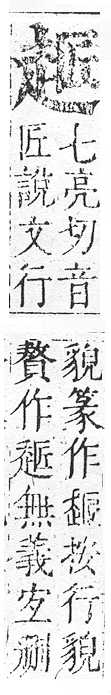 七亮切音
匠說文行
貌篆作按行貌
贅作無義宜刪